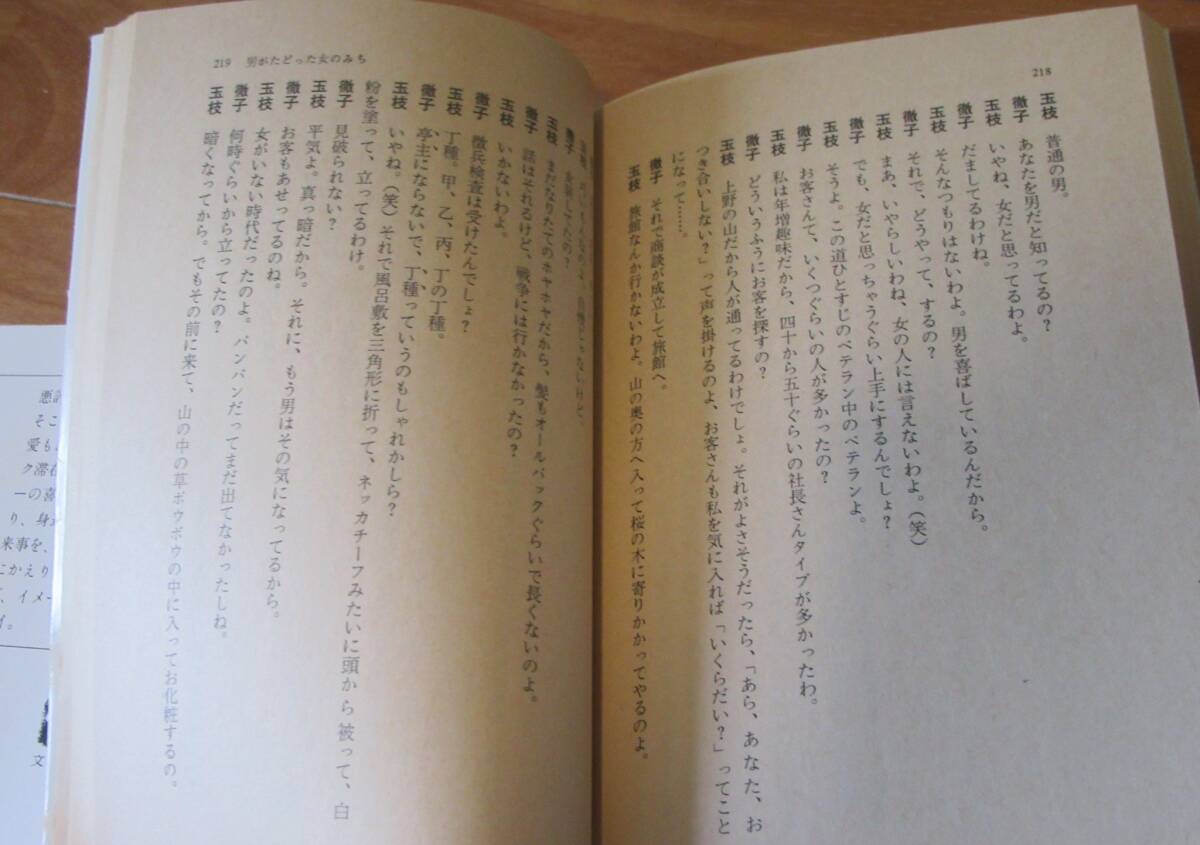 218
玉枝 普通の男。
徹子 あなたを男だと知ってるの?
玉枝 いやね、女だと思ってるわよ。
徹子 だましてるわけね。
玉枝 そんなつもりはないわよ。男を喜ばしているんだから。
徹子 それで、どうやって、するの?
玉枝 まあ、いやらしいわね、女の人には言えないわよ。(笑)
徹子 でも、女だと思っちゃうぐらい上手にするんでしょ?
玉枝 そうよ。この道ひとすじのベテラン中のベテランよ。
徹子 お客さんて、いくつぐらいの人が多かったの?
玉枝 私は年増趣味だから、四十から五十ぐらいの社長さんタイプが多かったわ。
徹子 どういうふうにお客を探すの?
玉枝 上野の山だから人が通ってるわけでしょ。それがよさそうだったら、「あら、あなた、お
つき合いしない?」って声を掛けるのよ、お客さんも私を気に入れば「いくらだい?」ってこと
になって……。
徹子 それで商談が成立して旅館へ。
玉枝 旅館なんか行かないわよ。山の奥の方へ入って桜の木に寄りかかってやるのよ。
219 男がたどった女のみち
徹子 女装してたの?
玉枝 まだなりたてのホヤホヤだから、髪もオールバックぐらいで長くないのよ。
徹子 話はそれるけど、戦争には行かなかったの?
玉枝 いかないわよ。
徹子 徴兵検査は受けたんでしょ?
玉枝 丁種。甲、乙、丙、丁の丁種。
徹子 亭主にならないで、丁種っていうのもしゃれかしら?
玉枝 いやね。(笑)それで風呂敷を三角形に折って、ネッカチーフみたいに頭から被って、白
粉を塗って、立ってるわけ。
徹子 見破られない?
玉枝 平気よ。真っ暗だから。それに、もう男はその気になってるから。
徹子 お客もあせってるのね。
玉枝 女がいない時代だったのよ。パンパンだってまだ出てなかったしね。
徹子 何時ぐらいから立ってたの?
玉枝 暗くなってから。でもその前に来て、山の中の草ボウボウの中に入ってお化粧するの。
そこ
愛も
ク滞在
ーの喜
り、身
来事を、
にかえり
イメー
文